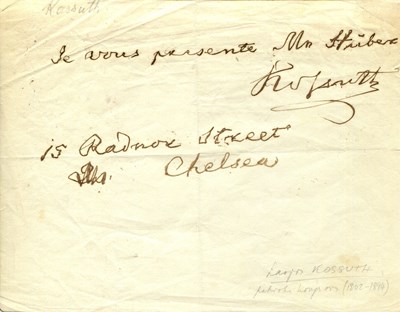 Kossuth
Je vous presente Mr Hüber
Kossuth
15 Radnor Street
Chelsea
Lajos KOSSUTH